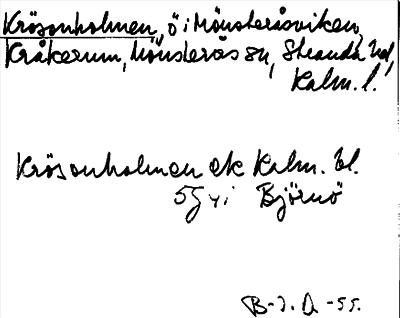 Krösonholmen, ö i Mönsteråsviken,
Kråkerum, Mönsterås sn, Stranda hd,
Kalm. l.
Krösonholmen ek Kalm. bl.
5J vi Björnö
B-J. D. -55.